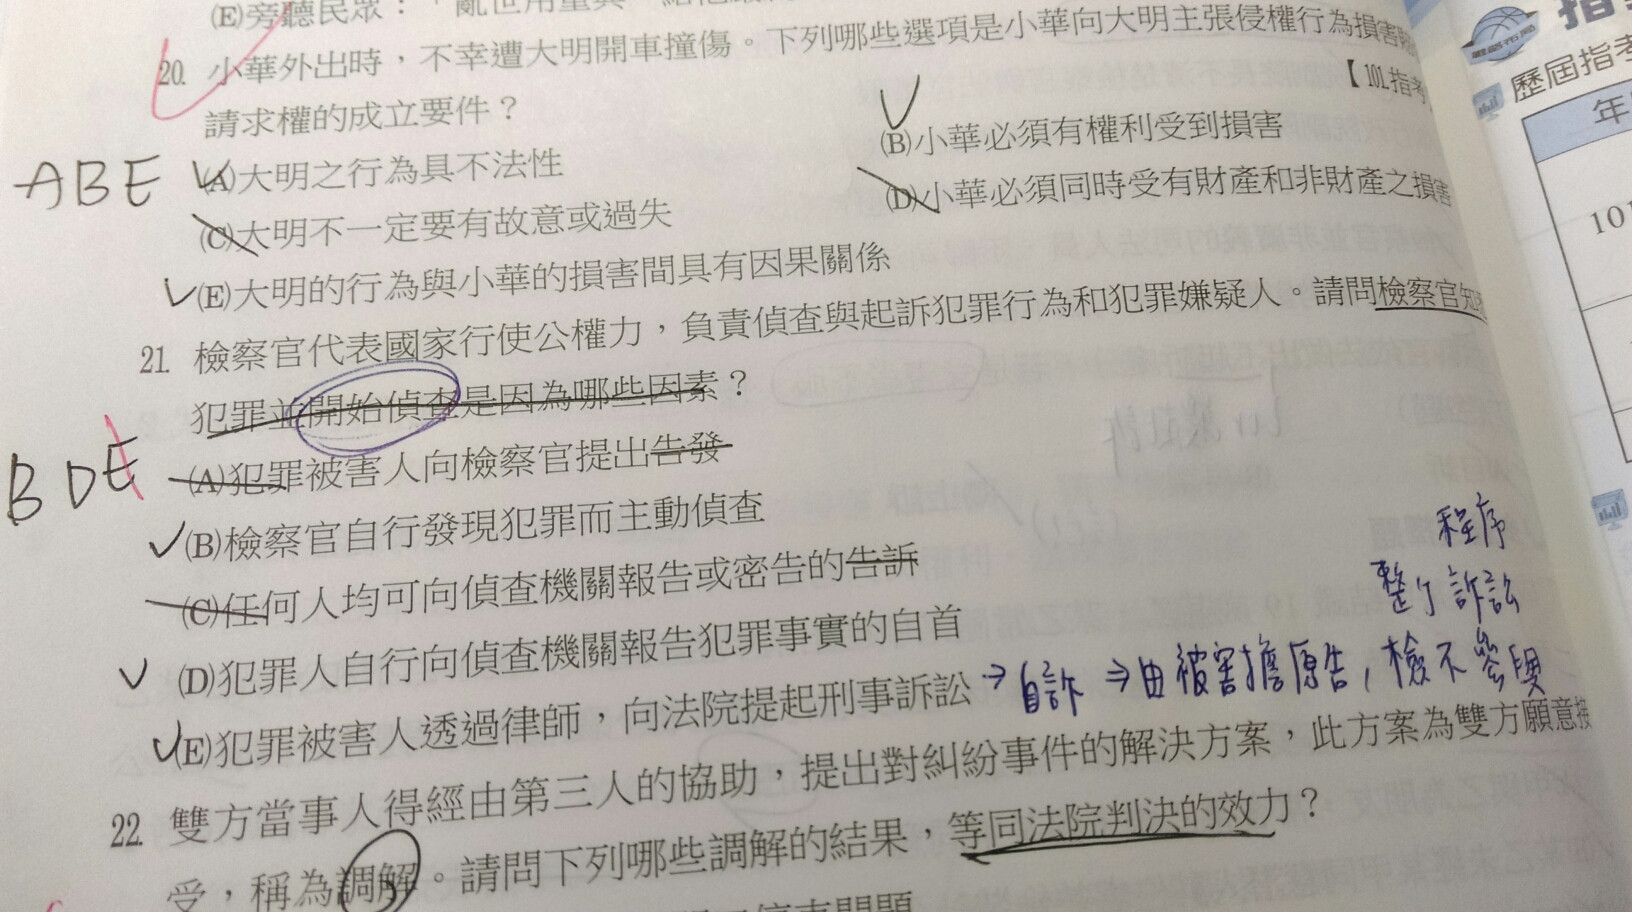 (E)旁聽民眾：「亂世用重典
20. 小華外出時，不幸遭大明開車撞傷。下列哪些選項是小華向大明主張侵權行為損害
請求權的成立要件？
【101.指考
ABE
(A)大明之行為具不法性
(B)小華必須有權利受到損害
(C)大明不一定要有故意或過失
(D)小華必須同時受有財產和非財產之損害
(E)大明的行為與小華的損害間具有因果關係
21. 檢察官代表國家行使公權力，負責偵查與起訴犯罪行為和犯罪嫌疑人。請問檢察官知
犯罪並開始偵查是因為哪些因素？
BDE
(A)犯罪被害人向檢察官提出告發
(B)檢察官自行發現犯罪而主動偵查
(C)任何人均可向偵查機關報告或密告的告訴
(D)犯罪人自行向偵查機關報告犯罪事實的自首
(E)犯罪被害人透過律師，向法院提起刑事訴訟
→自訴⇒由被害擔原告，檢不參與
整個訴訟
程序
22. 雙方當事人得經由第三人的協助，提出對糾紛事件的解決方案，此方案為雙方願意接
受，稱為調解。請問下列哪些調解的結果，等同法院判決的效力？
歷屆指考
年
101